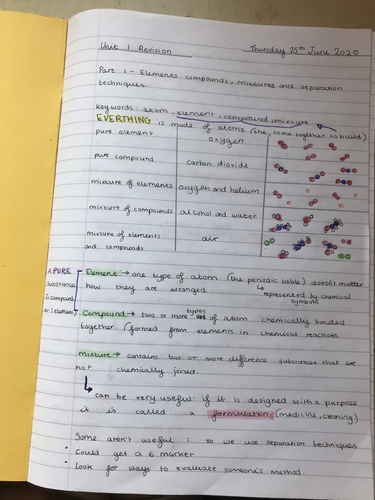 Unit 1 Revision Thursday 25th June 2020
Part 1 - Elements, compounds, mixtures and separation
techniques
Key words: atom, element, compound, mixture
EVERTHING is made of atoms (the come together to build)
pure element oxygen
pure compound carbon dioxide
mixture of elements oxygen and helium
mixture of compounds alcohol and water
mixture of elements air
and compounds
A PURE
Substance
is 1 compound
or 1 element
Element → one type of atom (the periodic table) doesn't matter
how they are arranged. ↳ represented by chemical
symbols
Compound → two or more types of atom chemically bonded
together (formed from elements in chemical reactions
mixture → contains two or more difference substances that are
not chemically joined.
↳ can be very useful: if it is designed with a purpose
it is called a formulation. (medicine, cleaning)
Some aren't useful : so we use separation techniques
• Could get a 6 marker
• Look for ways to evaluate someone's method.